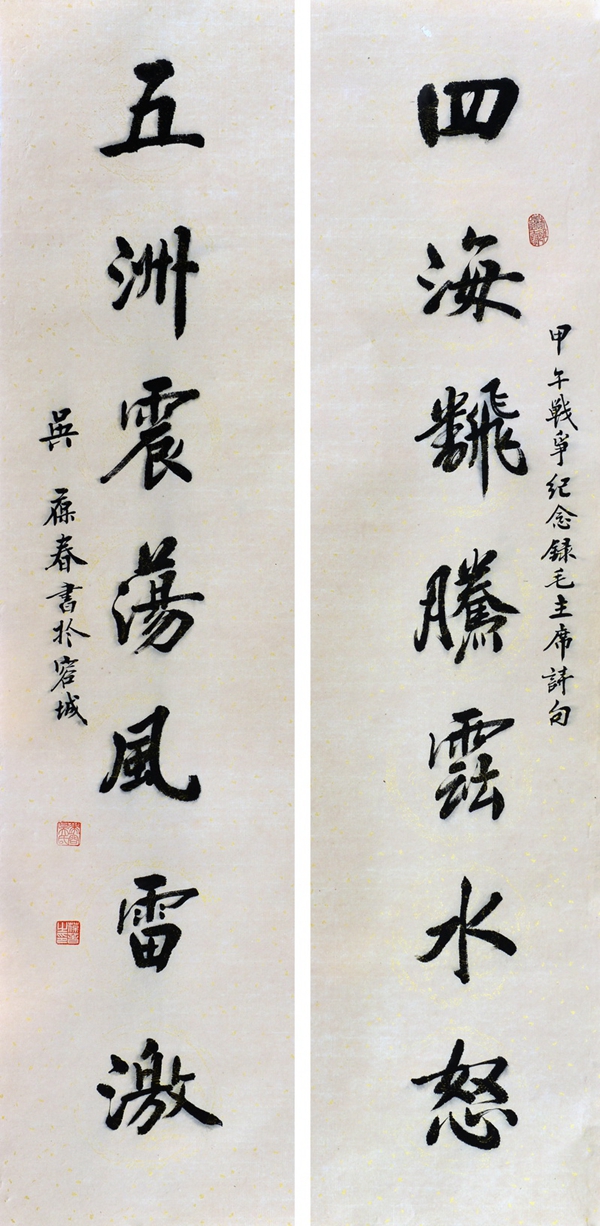 四海飜騰雲水怒
甲午戰爭紀念録毛主席詩句
五洲震蕩風雷激
吳葆春書於容城